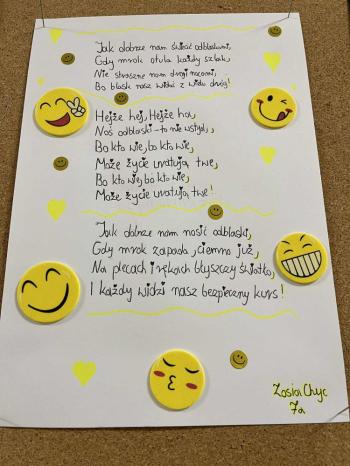 Jak dobrze nam świecić odblaskami,
Gdy mrok otula każdy szlak,
Nie straszne nam drogi nocami,
Bo blask nasz widać z wielu dróg!
Hejże hej, Hejże ha,
Noś odblaski - to nie wstyd,
Bo kto wie, bo kto wie,
Może życie uratują twe,
Bo kto wie, bo kto wie,
Może życie uratują twe!
Jak dobrze nam nosić odblaski,
Gdy mrok zapada, ciemno już,
Na plecach i rękach błyszczy światło,
I każdy widzi nasz bezpieczny kurs!
Zosia Chyc
7a